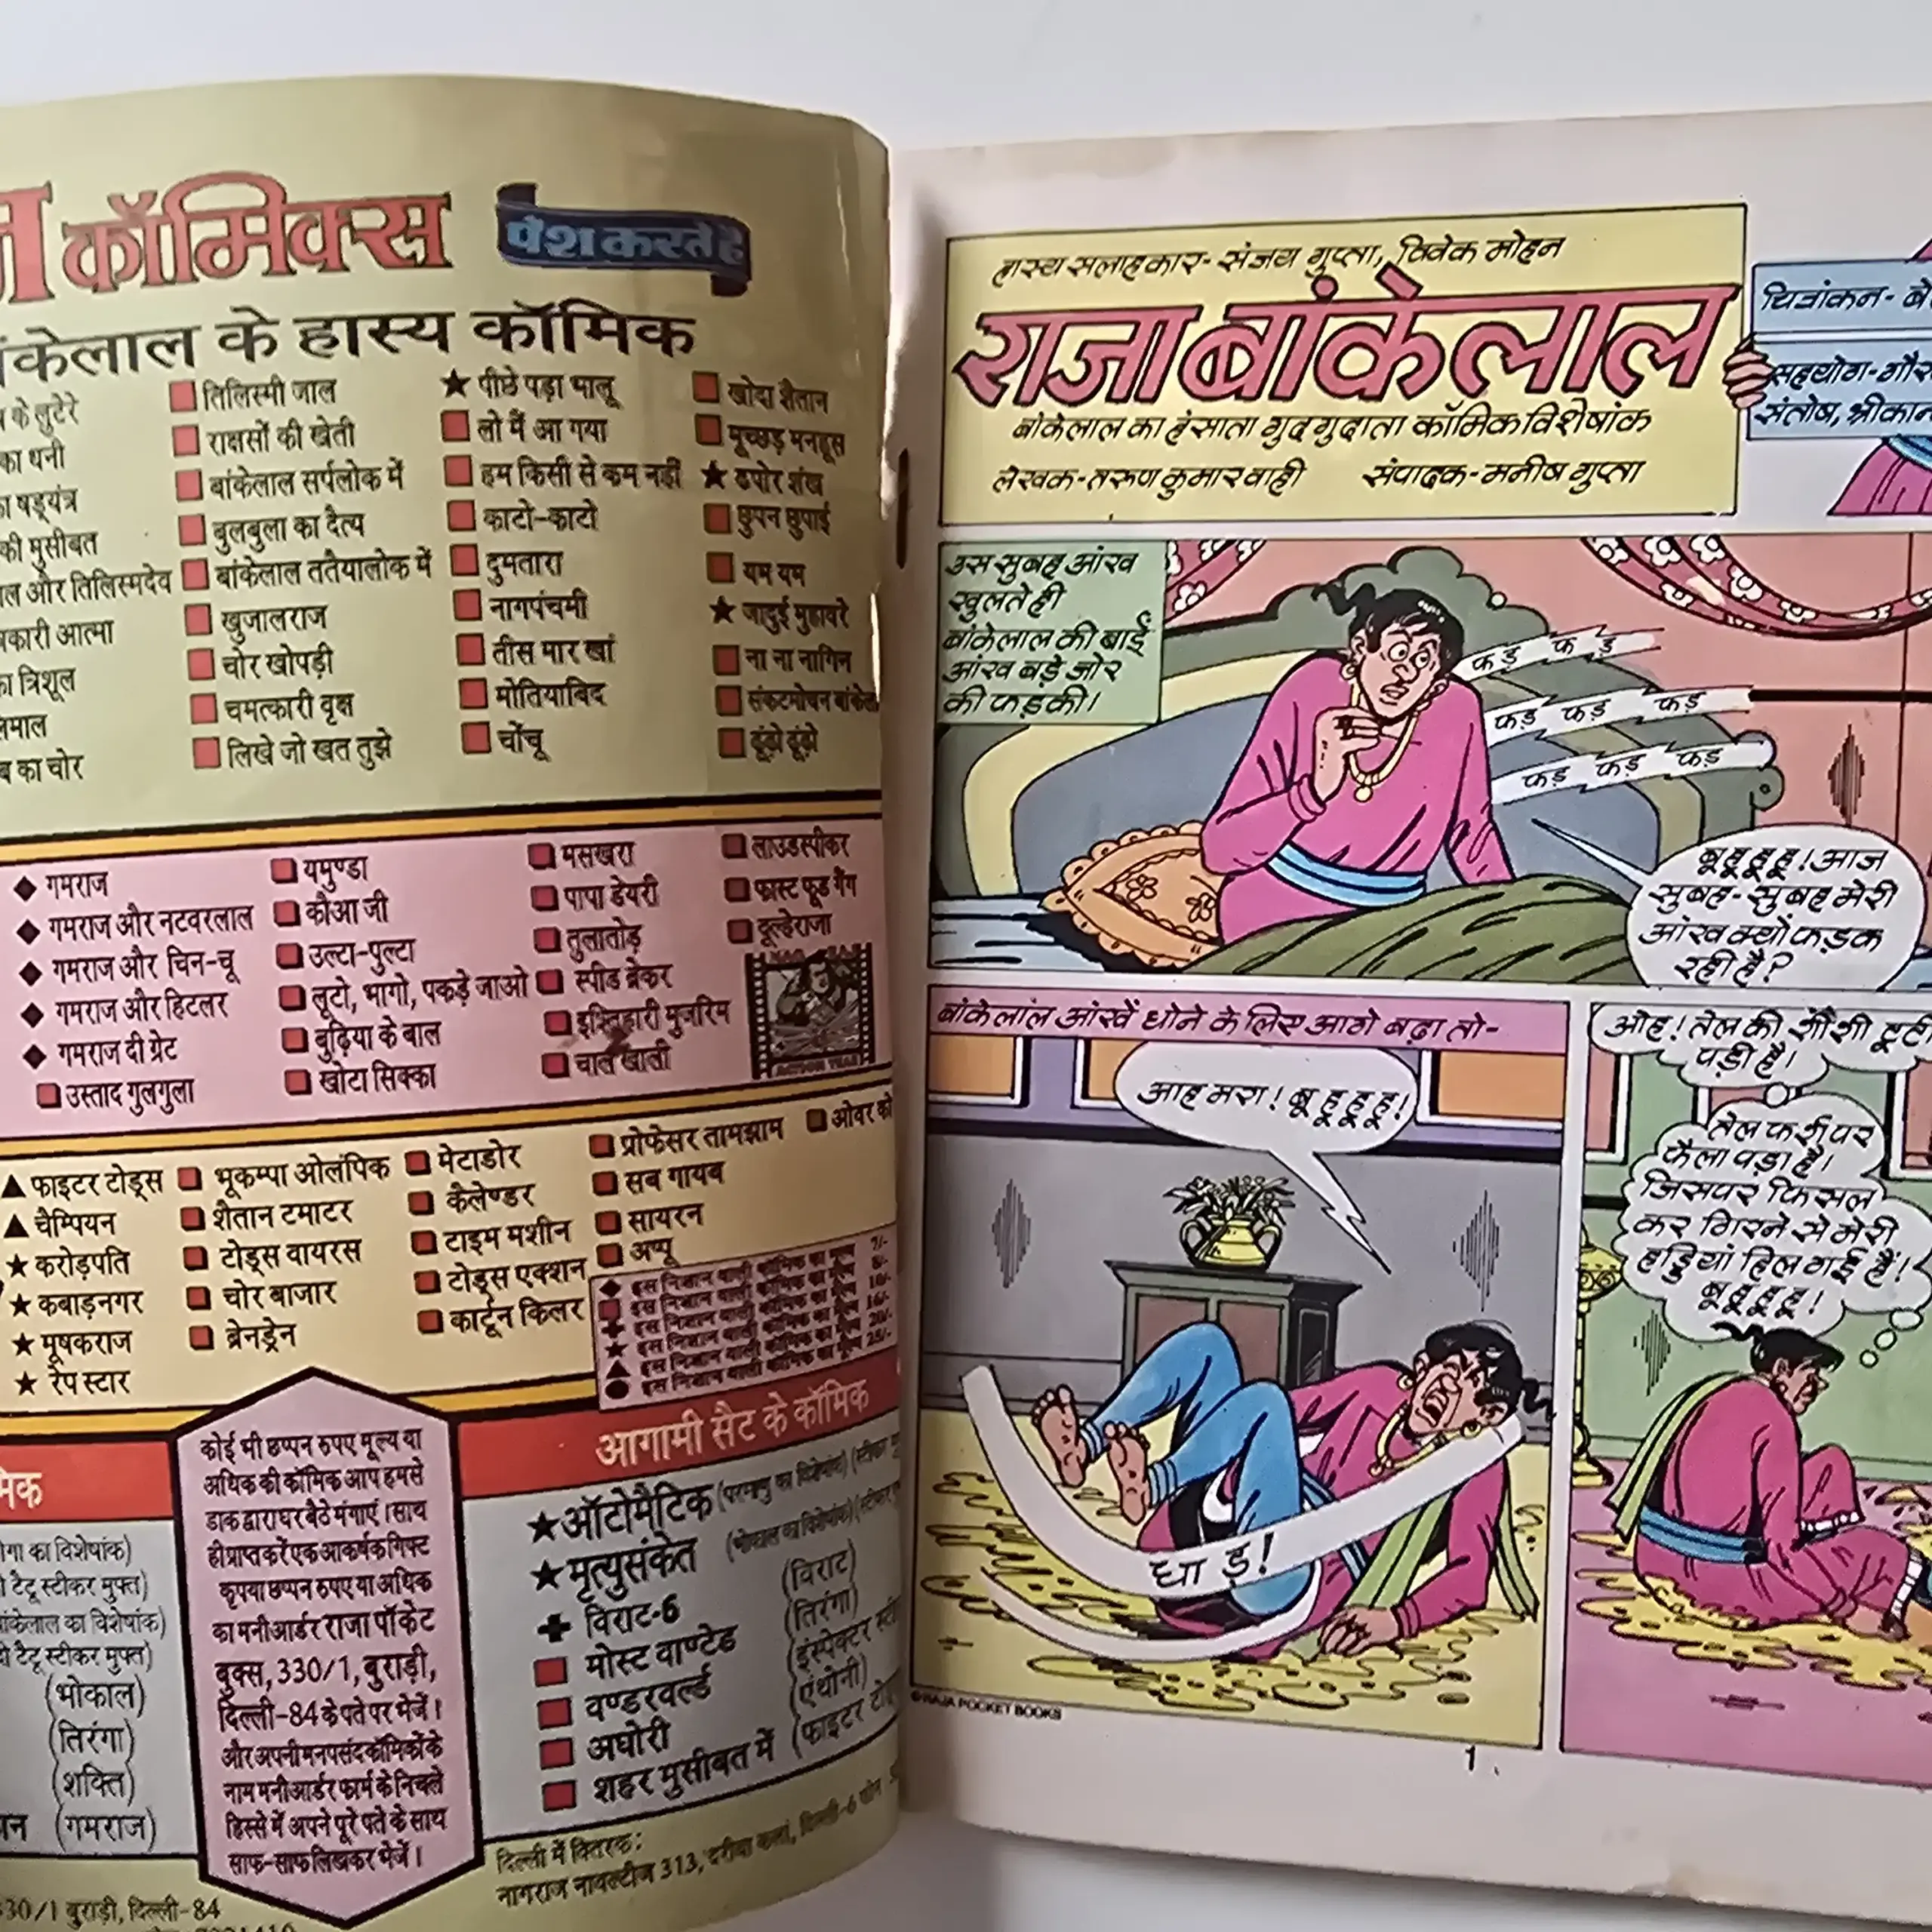 कॉमिक्स
पेश करते हैं
बांकेलाल के हास्य कॉमिक
के लुटेरे
का धनी
षड्यंत्र
की मुसीबत
और तिलिस्मदेव
आत्मा
का त्रिशूल
का चोर
तिलिस्मी जाल
राक्षसों की खेती
बांकेलाल सर्पलोक में
बुलबुला का दैत्य
बांकेलाल ततैयालोक में
खुजालराज
चोर खोपड़ी
चमत्कारी वृक्ष
लिखे जो खत तुझे
★ पीछे पड़ा भालू
लो मैं आ गया
हम किसी से कम नहीं
काटो-काटो
दुमतारा
नागपंचमी
तीस मार खां
मोतियाबिंद
चोंचू
खोदा शैतान
मूच्छड़ मनहूस
★ ढपोर शंख
छुपन छुपाई
यम यम
★ जादुई मुहावरे
ना ना नागिन
संकटमोचन
ढूंढो ढूंढो
◆ गमराज
◆ गमराज और नटवरलाल
◆ गमराज और चिन-चू
◆ गमराज और हिटलर
◆ गमराज दी ग्रेट
उस्ताद गुलगुला
यमुण्डा
कौआ जी
उल्टा-पुल्टा
लूटो, भागो, पकड़े जाओ
बुढ़िया के बाल
खोटा सिक्का
मसखरा
पापा डेयरी
तुलातोड़
स्पीड ब्रेकर
इश्तिहारी मुजरिम
लाउडस्पीकर
फास्ट फूड गैंग
दूल्हेराजा
ACTION YEAR
▲ फाइटर टोड्स
▲ चैम्पियन
★ करोड़पति
★ कबाड़नगर
★ मूषकराज
★ रेप स्टार
भूकम्पा ओलंपिक
शैतान टमाटर
टोड्स वायरस
चोर बाजार
ब्रेनड्रेन
मेटाडोर
कैलेण्डर
टाइम मशीन
टोड्स एक्शन
कार्टून किलर
प्रोफेसर तामझाम
सब गायब
सायरन
अप्पू
ओवर
◆ इस निशान वाली कॉमिक का मूल्य 7/-
इस निशान वाली कॉमिक का मूल्य 8/-
✚ इस निशान वाली कॉमिक का मूल्य 10/-
★ इस निशान वाली कॉमिक का मूल्य 16/-
▲ इस निशान वाली कॉमिक का मूल्य 20/-
● इस निशान वाली कॉमिक का मूल्य 25/-
का विशेषांक)
टैटू स्टीकर मुफ्त)
बांकेलाल का विशेषांक)
टैटू स्टीकर मुफ्त)
(भोकाल)
(तिरंगा)
(शक्ति)
(गमराज)
कोई भी छप्पन रुपए मूल्य या
अधिक की कॉमिक आप हमसे
डाक द्वारा घर बैठे मंगाएं। साथ
ही प्राप्त करें एक आकर्षक गिफ्ट
कृपया छप्पन रुपए या अधिक
का मनीआर्डर राजा पॉकेट
बुक्स, 330/1, बुराड़ी,
दिल्ली-84 के पते पर भेजें।
और अपनी मनपसंद कॉमिकों के
नाम मनीआर्डर फार्म के निचले
हिस्से में अपने पूरे पते के साथ
साफ-साफ लिखकर भेजें।
आगामी सैट के कॉमिक
★ ऑटोमैटिक (परमाणु का विशेषांक)
★ मृत्युसंकेत (भोकाल का विशेषांक)
✚ विराट-6 (विराट)
मोस्ट वाण्टेड (तिरंगा)
वण्डरवर्ल्ड (इंस्पेक्टर
अघोरी (एंथोनी)
शहर मुसीबत में (फाइटर
दिल्ली में वितरक:
नागराज नावल्टीज 313, दरीबा कलां, दिल्ली-6 फोन
330/1 बुराड़ी, दिल्ली-84
हास्य सलाहकार- संजय गुप्ता, विवेक मोहन
राजा बांकेलाल
बांकेलाल का हंसाता गुदगुदाता कॉमिक विशेषांक
लेखक-तरुण कुमार वाही संपादक-मनीष गुप्ता
चित्रांकन-
सहयोग-
संतोष,
उस सुबह आंख
खुलते ही
बांकेलाल की बाईं
आंख बड़े जोर
की फड़की।
फड़ फड़
फड़ फड़ फड़
फड़ फड़ फड़
बूहूहूहू! आज
सुबह-सुबह मेरी
आंख क्यों फड़क
रही है?
बांकेलाल आंखें धोने के लिए आगे बढ़ा तो-
आह मरा! बूहूहूहू!
धाड़!
ओह! तेल की शीशी टूटी
पड़ी है।
तेल फर्श पर
फैला पड़ा है।
जिसपर फिसल
कर गिरने से मेरी
हड्डियां हिल गई हैं!
बूहूहूहू!
©RAJA POCKET BOOKS
1